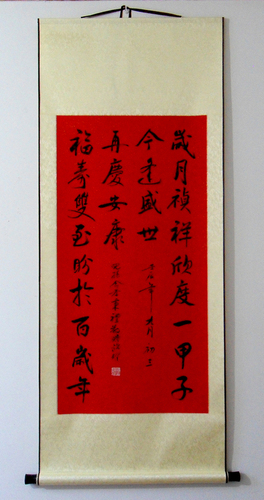 歲月禎祥欣度一甲子
今逢盛世
再慶安康
福壽雙至盼於百歲年